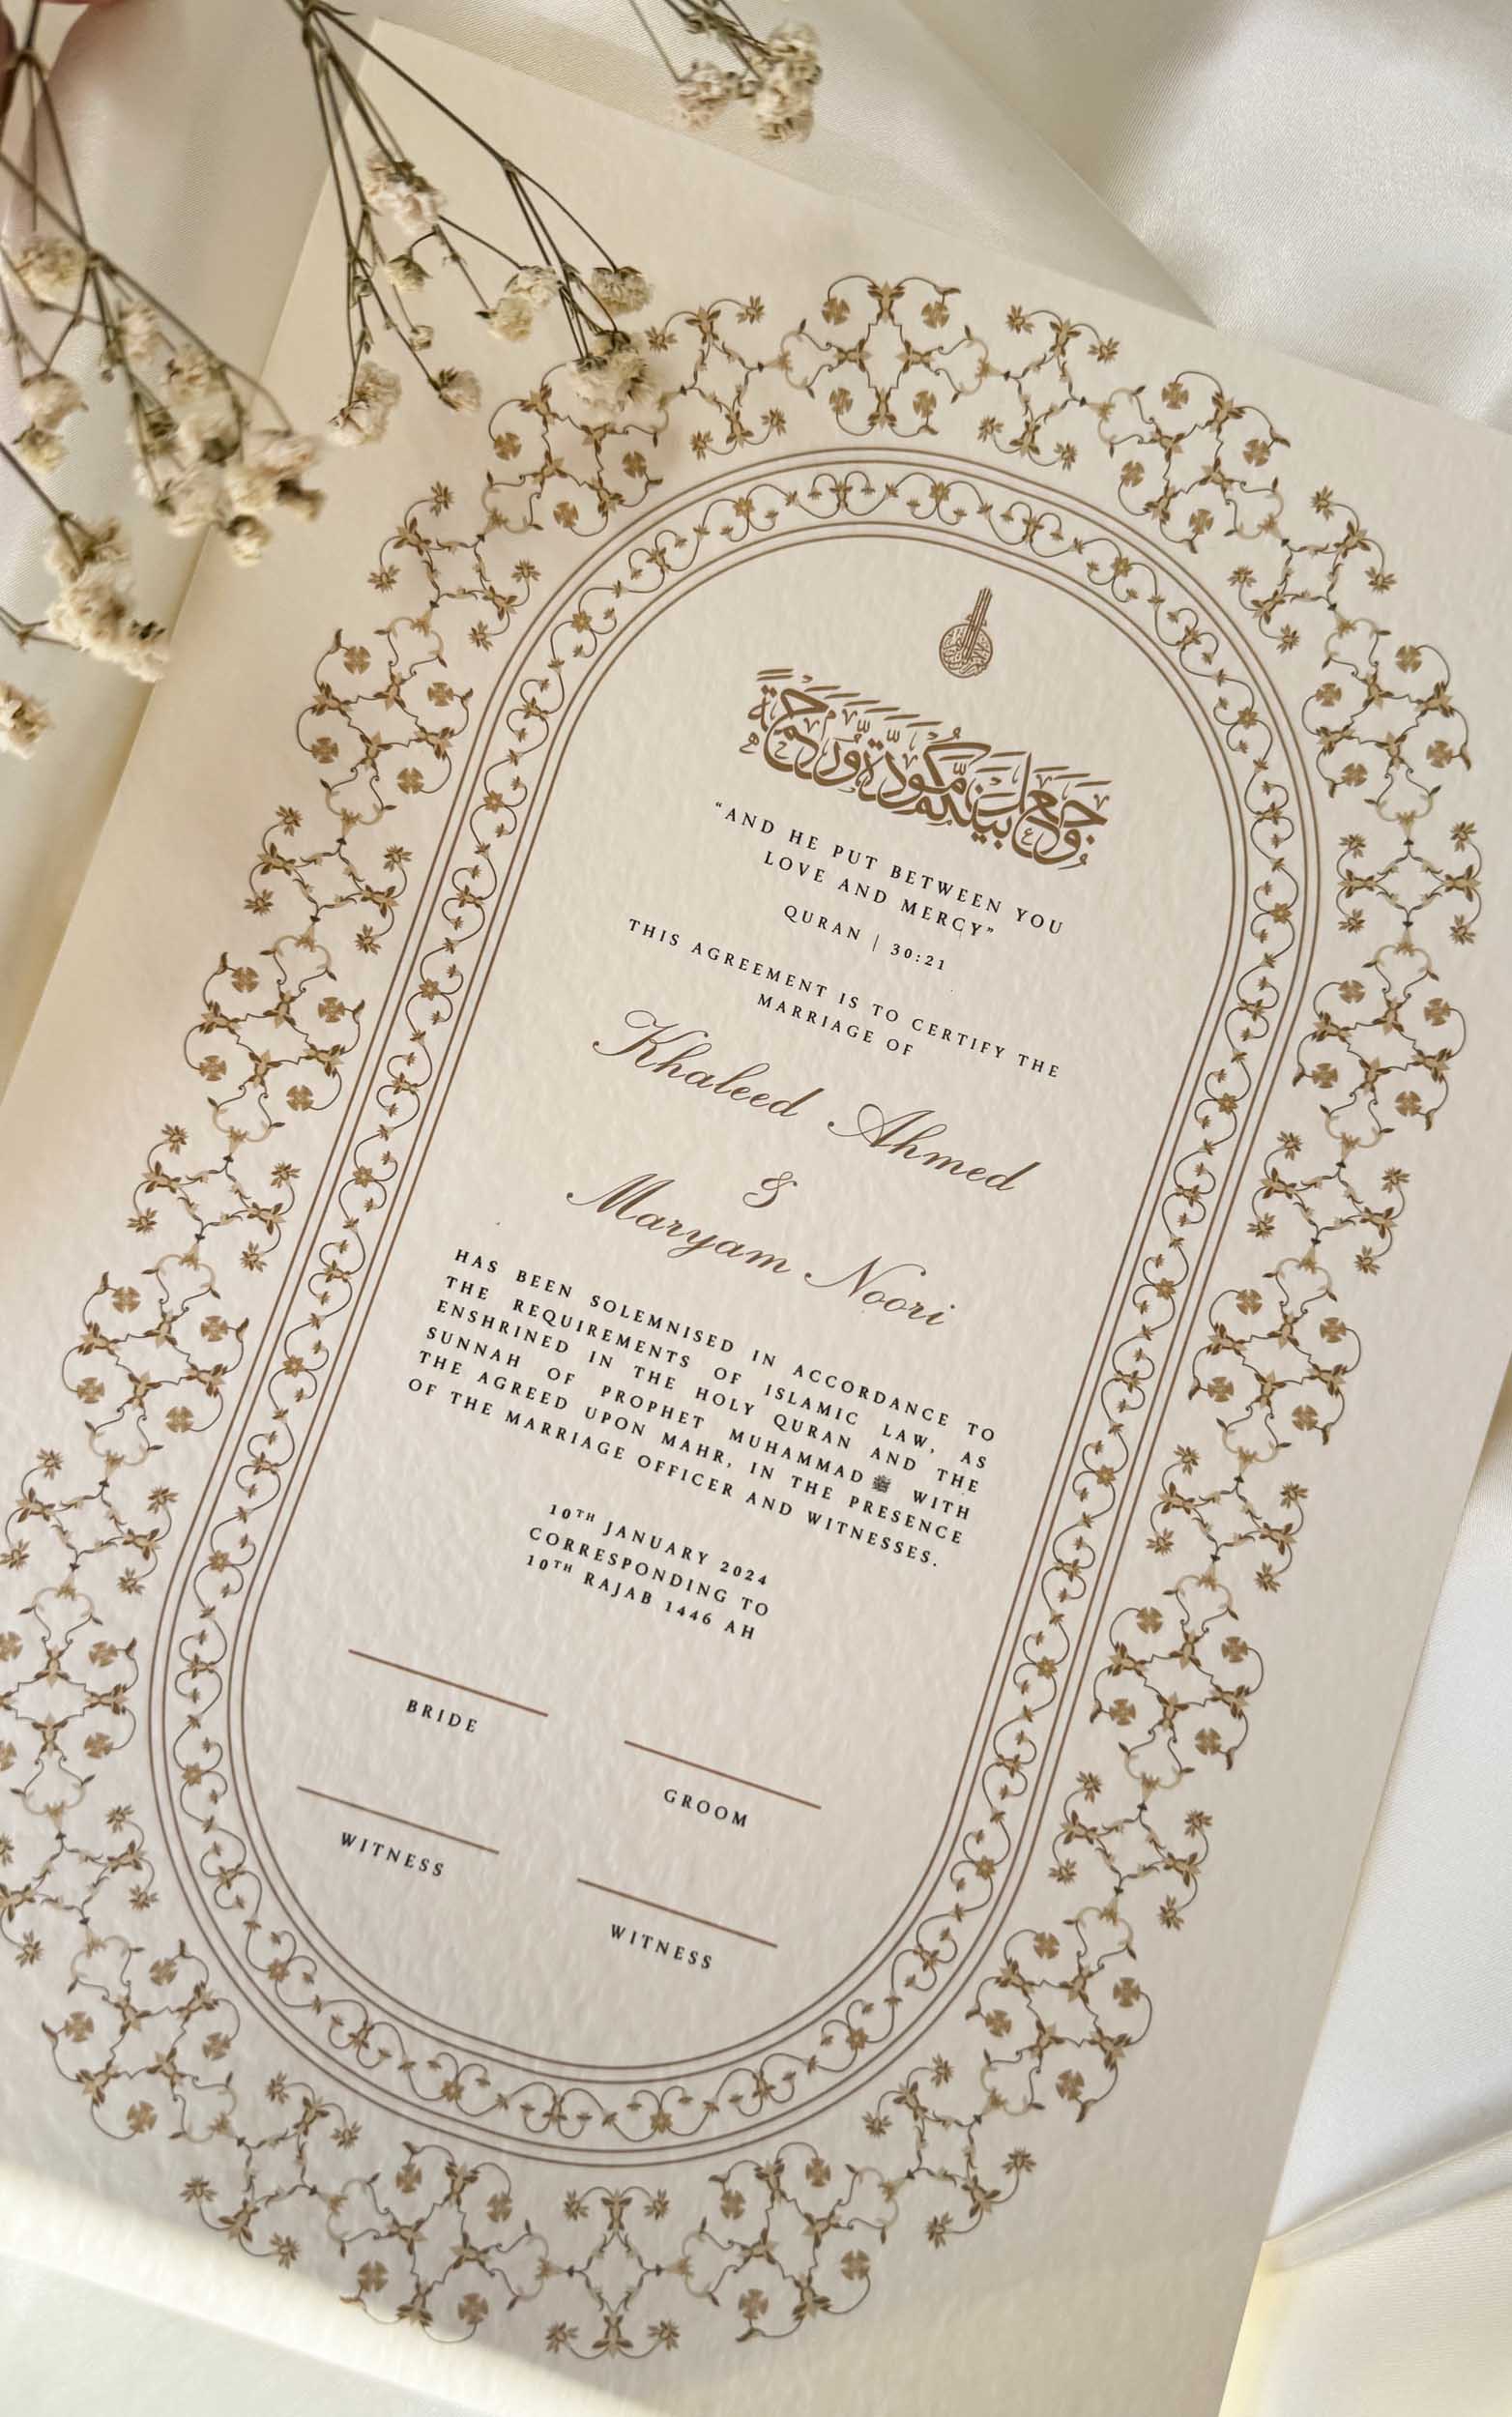 وَجَعَلَ بَيْنَكُم مَّوَدَّةً وَرَحْمَةً
“AND HE PUT BETWEEN YOU
LOVE AND MERCY”
QURAN | 30:21
THIS AGREEMENT IS TO CERTIFY THE
MARRIAGE OF
Khaleed Ahmed
&
Maryam Noori
HAS BEEN SOLEMNISED IN ACCORDANCE TO
THE REQUIREMENTS OF ISLAMIC LAW, AS
ENSHRINED IN THE HOLY QURAN AND THE
SUNNAH OF PROPHET MUHAMMAD ﷺ WITH
THE AGREED UPON MAHR, IN THE PRESENCE
OF THE MARRIAGE OFFICER AND WITNESSES.
10TH JANUARY 2024
CORRESPONDING TO
10TH RAJAB 1446 AH
BRIDE
GROOM
WITNESS
WITNESS